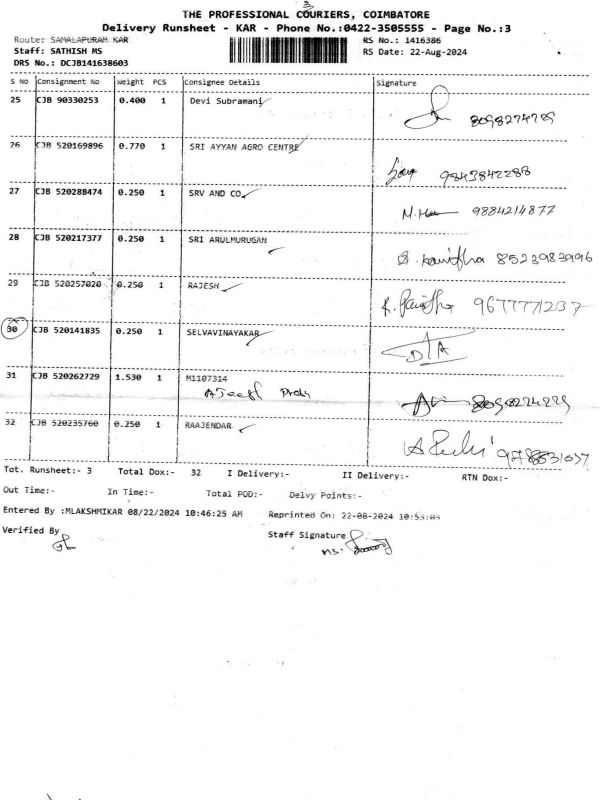 THE PROFESSIONAL COURIERS, COIMBATORE
Delivery Runsheet - KAR - Phone No.:0422-3505555 - Page No.:3
Route: SAMALAPURAM KAR RS No.: 1416386
Staff: SATHISH MS RS Date: 22-Aug-2024
DRS No.: DCJB141638603
S No Consignment No Weight PCS Consignee Details Signature
25 CJB 90330253 0.400 1 Devi Subramani 8098274229
26 CJB 520169896 0.770 1 SRI AYYAN AGRO CENTRE 9843842288
27 CJB 520288474 0.250 1 SRV AND CO 9884214877
28 CJB 520217377 0.250 1 SRI ARULMURUGAN 8523983996
29 CJB 520257020 0.250 1 RAJESH
30 CJB 520141835 0.250 1 SELVAVINAYAKAR
31 CJB 520262729 1.530 1 M1107314
32 CJB 520235760 0.250 1 RAAJENDAR
Tot. Runsheet:- 3 Total Dox:- 32 I Delivery:- II Delivery:- RTN Dox:-
Out Time:- In Time:- Total POD:- Delvy Points:-
Entered By :MLAKSHMIKAR 08/22/2024 10:46:25 AM Reprinted On: 22-08-2024 10:53:03
Verified By Staff Signature